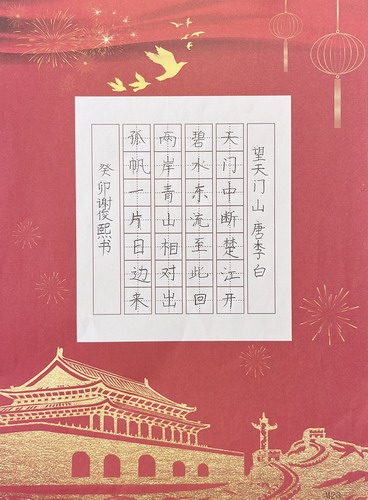 望天门山 唐李白
天门中断楚江开
碧水东流至此回
两岸青山相对出
孤帆一片日边来
癸卯谢俊熙书